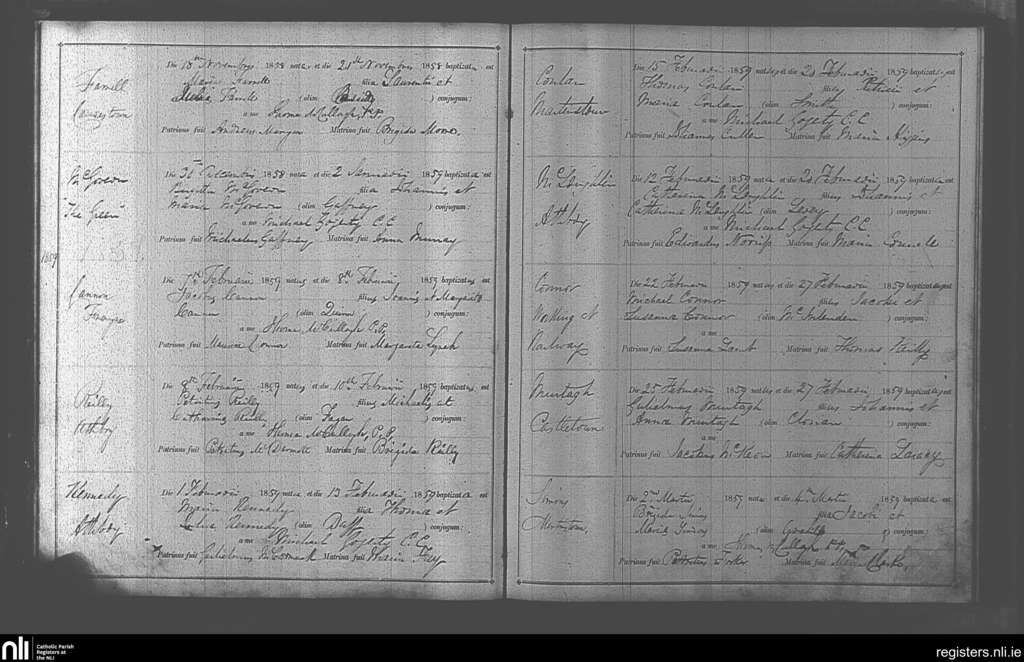 Farrell
Die 18th Novembris 1858 nata et die 21st Novembris 1858 baptizata est
Maria Farrell filia Laurentii et
Julia Farrell (olim Cassidy) conjugum:
a me Thoma McCullagh, P.P.
Patrinus fuit Andreas Mangan Matrina fuit Brigida Moore.
McGovern
"The Green"
Die 31st Decembris 1858 nata et die 2 Januarii 1859 baptizata est
Brigitta McGovern filia Johannis et
Maria McGovern (olim Gaffney) conjugum:
a me Michael Gogety C C
Patrinus fuit Michaelus Gaffney Matrina fuit Anna Murray
1859
Cannon
Die 7th Februarii 1859 natus et die 8th Februarii 1859 baptizatus est
Jacobus Cannon filius Joannis et Margarita
Cannon (olim Quinn) conjugum:
a me Thoma McCullagh P.P.
Patrinus fuit Connor Matrina fuit Margarita Lynch
Reilly
Athboy
Die 8th Februarii 1859 natus et die 10th Februarii 1859 baptizatus est
Patritius Reilly filius Michaelis et
Catharina Reilly (olim Fagan) conjugum:
a me Thoma McCullagh, P.P.
Patrinus fuit Patritius McDermott Matrina fuit Brigida Reilly
Kennedy
Athboy
Die 1 Februarii 1859 nata et die 13 Februarii 1859 baptizata est
Maria Kennedy filia Thoma et
Kennedy (olim Duff) conjugum:
a me Michael Gogety C.C.
Patrinus fuit Gulielmus McCormack Matrina fuit Maria Fry
Conlan
Martinstown
Die 15 Februarii 1859 natus et die 20 Februarii 1859 baptizatus est
Thomas Conlan filius Patricii et
Maria Conlan (olim Smith) conjugum:
a me Michael Gogety C.C
Patrinus fuit Johannes Cullen Matrina fuit Maria Higgins
McLoughlin
Athboy
Die 12 Februarii 1859 nata et die 20 Februarii 1859 baptizata est
Catherina McLoughlin Johannis et
Catherina McLoughlin (olim Leddy) conjugum:
a me Michael Gogety C.C
Patrinus fuit Edwardus Norris Matrina fuit Maria
Connor
Working at
Railway
Die 22 Februarii 1859 natus et die 27 Februarii 1859 baptizatus est
Michael Connor filius Jacobi et
Susanna Connor (olim) conjugum:
a me
Patrinus fuit Susanna Matrina fuit Thomas Reilly
Murtagh
Castletown
Die 25 Februarii 1859 natus et die 27 Februarii 1859 baptizatus est
Gulielmus Murtagh filius Johannis et
Anna Murtagh (olim) conjugum:
a me
Patrinus fuit Jacobus McKeon Matrina fuit Catherina
Die 2nd Martii 1859 nata et die 4th Martii 1859 baptizata est
filia Jacobi et
Maria (olim) conjugum:
a me Thoma McCullagh P.P.
Patrinus fuit Patritius Matrina fuit Maria Clarke,
nli
Catholic Parish
Registers at
the NLI
registers.nli.ie